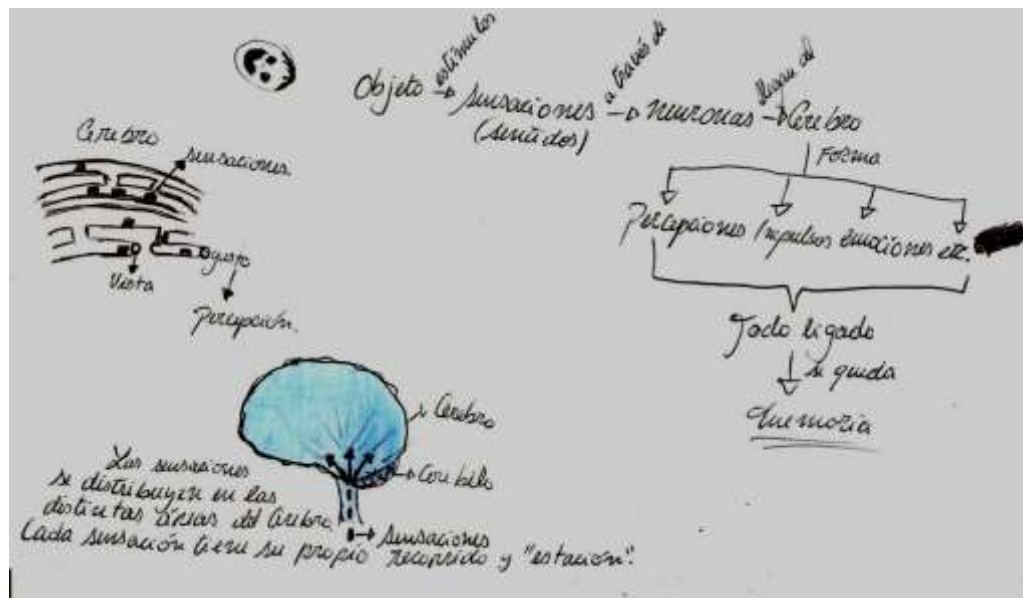 Objeto estímulos sensaciones a través de neuronas llevan al Cerebro
(sentidos)
Forma
Percepciones Impulsos emociones etc.
Todo ligado
se queda
memoria
Cerebro
sensaciones
Vista
gusto
Percepción.
Cerebro
Sensaciones
Las sensaciones
se distribuyen en las
distintas áreas del Cerebro.
Cada sensación tiene su propio recorrido y "estación".